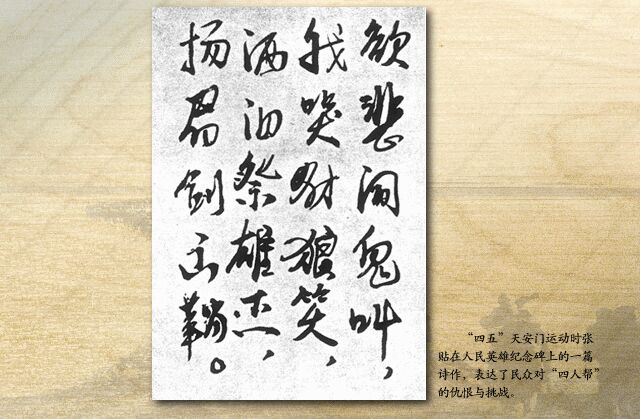 欲悲闻鬼叫，
我哭豺狼笑，
洒泪祭雄杰，
扬眉剑出鞘。
“四五”天安门运动时张
贴在人民英雄纪念碑上的一篇
诗作，表达了民众对“四人帮”
的仇恨与挑战。